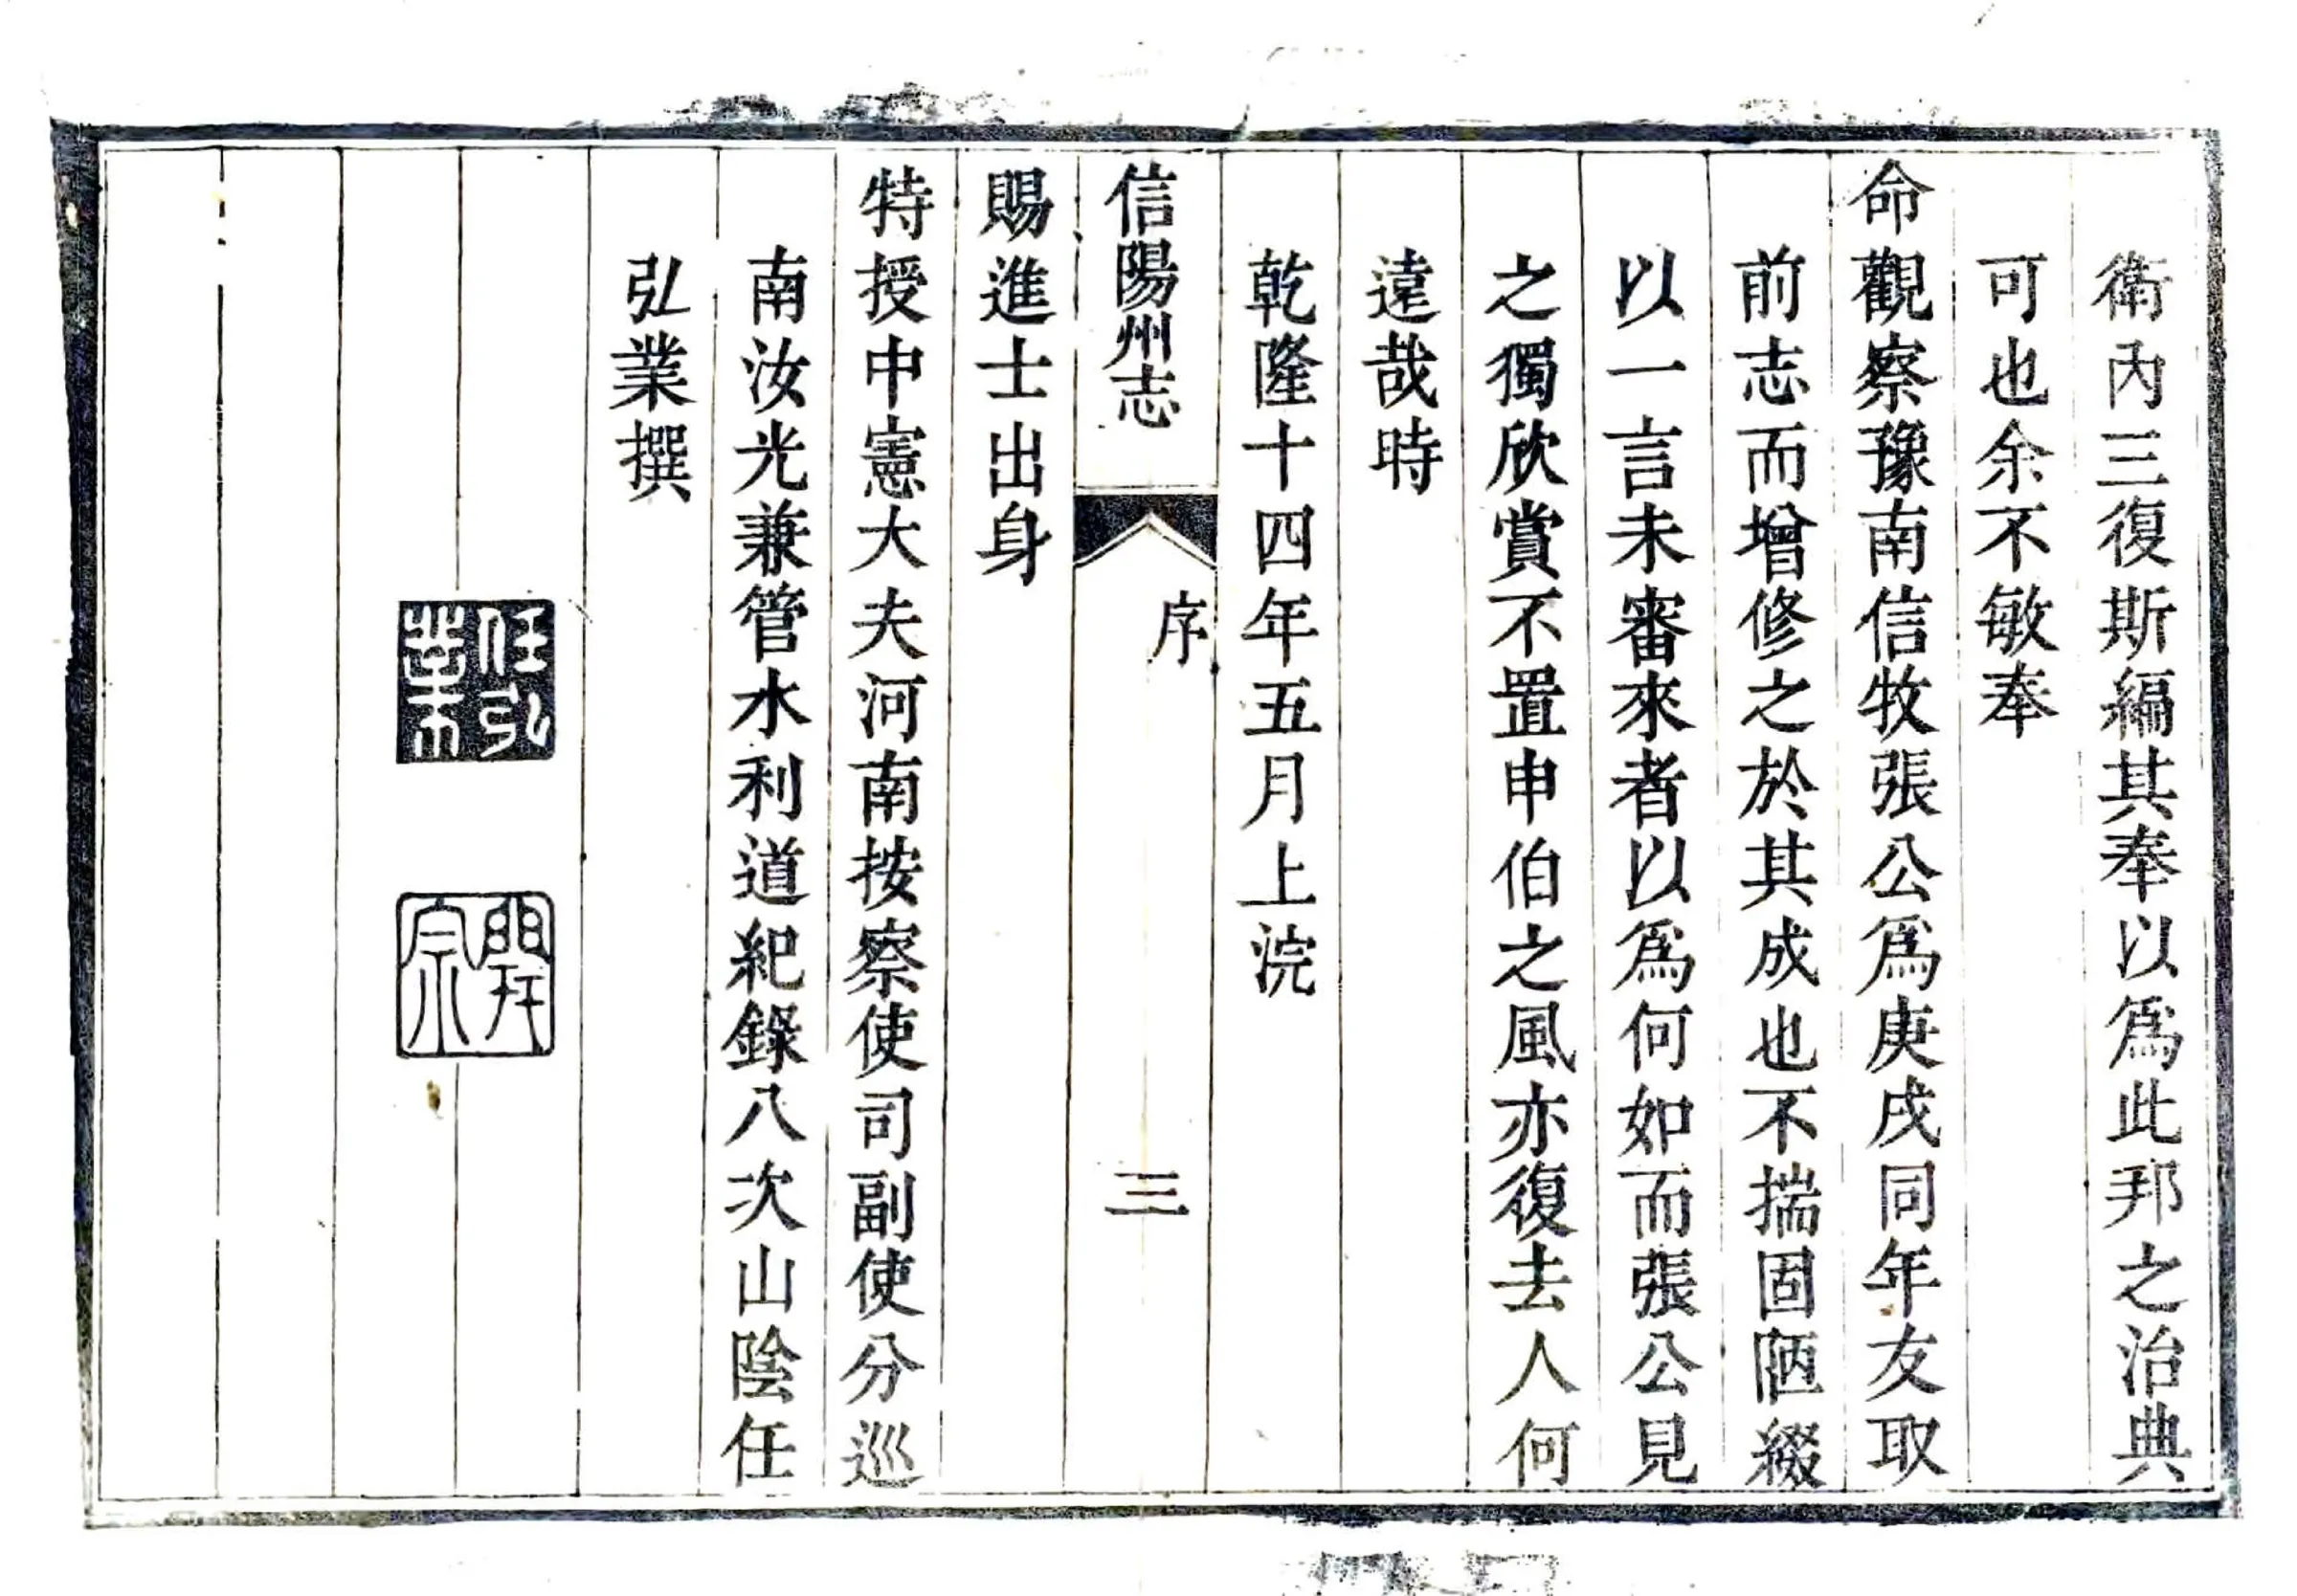 衛內三復斯編其奉以爲此邦之治典
可也余不敏奉
命觀察豫南信牧張公爲庚戌同年友取
前志而增修之於其成也不揣固陋綴
以一言未審來者以爲何如而張公見
之獨欣賞不置申伯之風亦復去人何
遠哉時
乾隆十四年五月上浣
信陽州志
序
三
賜進士出身
特授中憲大夫河南按察使司副使分巡
南汝光兼管水利道紀錄八次山陰任
弘業撰
任弘業